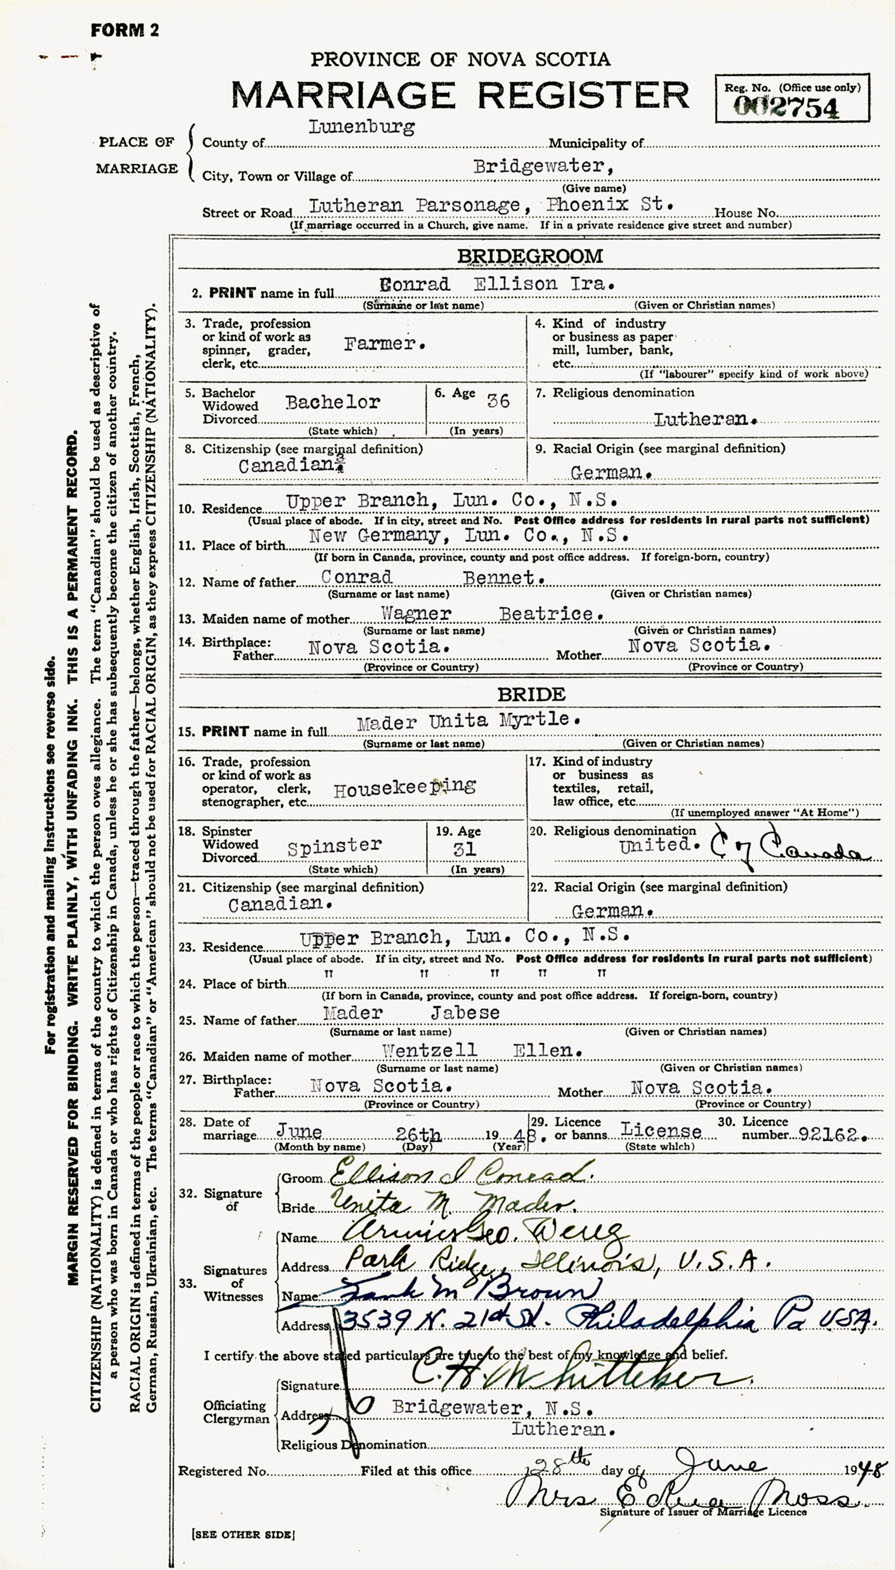 FORM 2
PROVINCE OF NOVA SCOTIA
MARRIAGE REGISTER
Reg. No. (Office use only)
002754
PLACE OF MARRIAGE
County of Lunenburg Municipality of
City, Town or Village of Bridgewater,
(Give name)
Street or Road Lutheran Parsonage, Phoenix St. House No.
(If marriage occurred in a Church, give name. If in a private residence give street and number)
BRIDEGROOM
2. PRINT name in full Conrad Ellison Ira.
(Surname or last name) (Given or Christian names)
3. Trade, profession
or kind of work as
spinner, grader,
clerk, etc. Farmer.
4. Kind of industry
or business as paper
mill, lumber, bank,
etc.
(If "labourer" specify kind of work above)
5. Bachelor
Widowed
Divorced Bachelor
(State which)
6. Age 36
(In years)
7. Religious denomination
Lutheran.
8. Citizenship (see marginal definition)
Canadian.
9. Racial Origin (see marginal definition)
German.
10. Residence Upper Branch, Lun. Co., N.S.
(Usual place of abode. If in city, street and No. Post Office address for residents in rural parts not sufficient)
11. Place of birth New Germany, Lun. Co., N.S.
(If born in Canada, province, county and post office address. If foreign-born, country)
12. Name of father Conrad Bennet.
(Surname or last name) (Given or Christian names)
13. Maiden name of mother Wagner Beatrice.
(Surname or last name) (Given or Christian names)
14. Birthplace:
Father Nova Scotia. Mother Nova Scotia.
(Province or Country) (Province or Country)
BRIDE
15. PRINT name in full Mader Unita Myrtle.
(Surname or last name) (Given or Christian names)
16. Trade, profession
or kind of work as
operator, clerk,
stenographer, etc. Housekeeping
17. Kind of industry
or business as
textiles, retail,
law office, etc.
(If unemployed answer "At Home")
18. Spinster
Widowed
Divorced Spinster
(State which)
19. Age
31
(In years)
20. Religious denomination
United. C of Canada
21. Citizenship (see marginal definition)
Canadian.
22. Racial Origin (see marginal definition)
German.
23. Residence Upper Branch, Lun. Co., N.S.
(Usual place of abode. If in city, street and No. Post Office address for residents in rural parts not sufficient)
24. Place of birth " " " " "
(If born in Canada, province, county and post office address. If foreign-born, country)
25. Name of father Mader Jabese
(Surname or last name) (Given or Christian names)
26. Maiden name of mother Wentzell Ellen.
(Surname or last name) (Given or Christian names)
27. Birthplace:
Father Nova Scotia. Mother Nova Scotia.
(Province or Country) (Province or Country)
28. Date of
marriage June 26th 1948.
(Month by name) (Day) (Year)
29. Licence
or banns License
(State which)
30. Licence
number 92162.
32. Signature of
Groom Ellison I Conrad.
Bride Unita M. Mader.
33. Signatures of Witnesses
Name Geo.
Address Park Ridge, Illinois, U.S.A.
Name M Brown
Address 3539 N. 21st St. Philadelphia Pa USA.
I certify the above stated particulars are true to the best of my knowledge and belief.
Officiating Clergyman
Signature C. H. Whitteker.
Address Bridgewater, N.S.
Lutheran.
Religious Denomination
Registered No. Filed at this office 28th day of June 1948
Mrs Edna Moss.
Signature of Issuer of Marriage Licence
[SEE OTHER SIDE]
For registration and mailing instructions see reverse side.
MARGIN RESERVED FOR BINDING. WRITE PLAINLY, WITH UNFADING INK. THIS IS A PERMANENT RECORD.
CITIZENSHIP (NATIONALITY) is defined in terms of the country to which the person owes allegiance. The term "Canadian" should be used as descriptive of
a person who was born in Canada or who has rights of Citizenship in Canada, unless he or she has subsequently become the citizen of another country.
RACIAL ORIGIN is defined in terms of the people or race to which the person—traced through the father—belongs, whether English, Irish, Scottish, French,
German, Russian, Ukrainian, etc. The terms "Canadian" or "American" should not be used for RACIAL ORIGIN, as they express CITIZENSHIP (NATIONALITY).